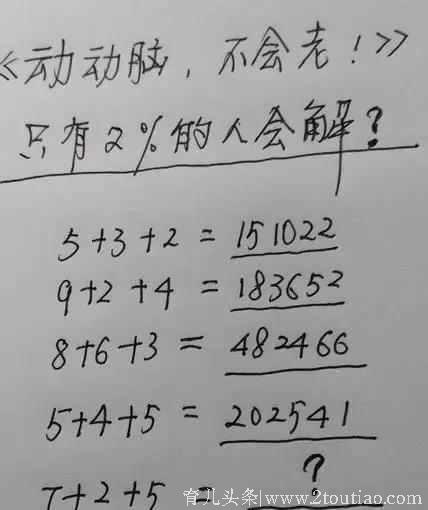 《动动脑，不会老！》
只有2%的人会解？
5+3+2 = 151022
9+2+4 = 183652
8+6+3 = 482466
5+4+5 = 202541
7+2+5 = ?
育儿头条|www.2toutiao.com